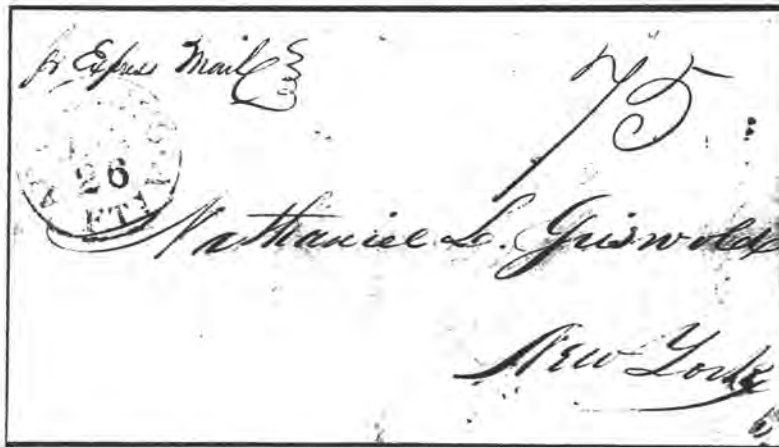 pr Express Mail
75
26
Nathaniel L. Griswold
New York